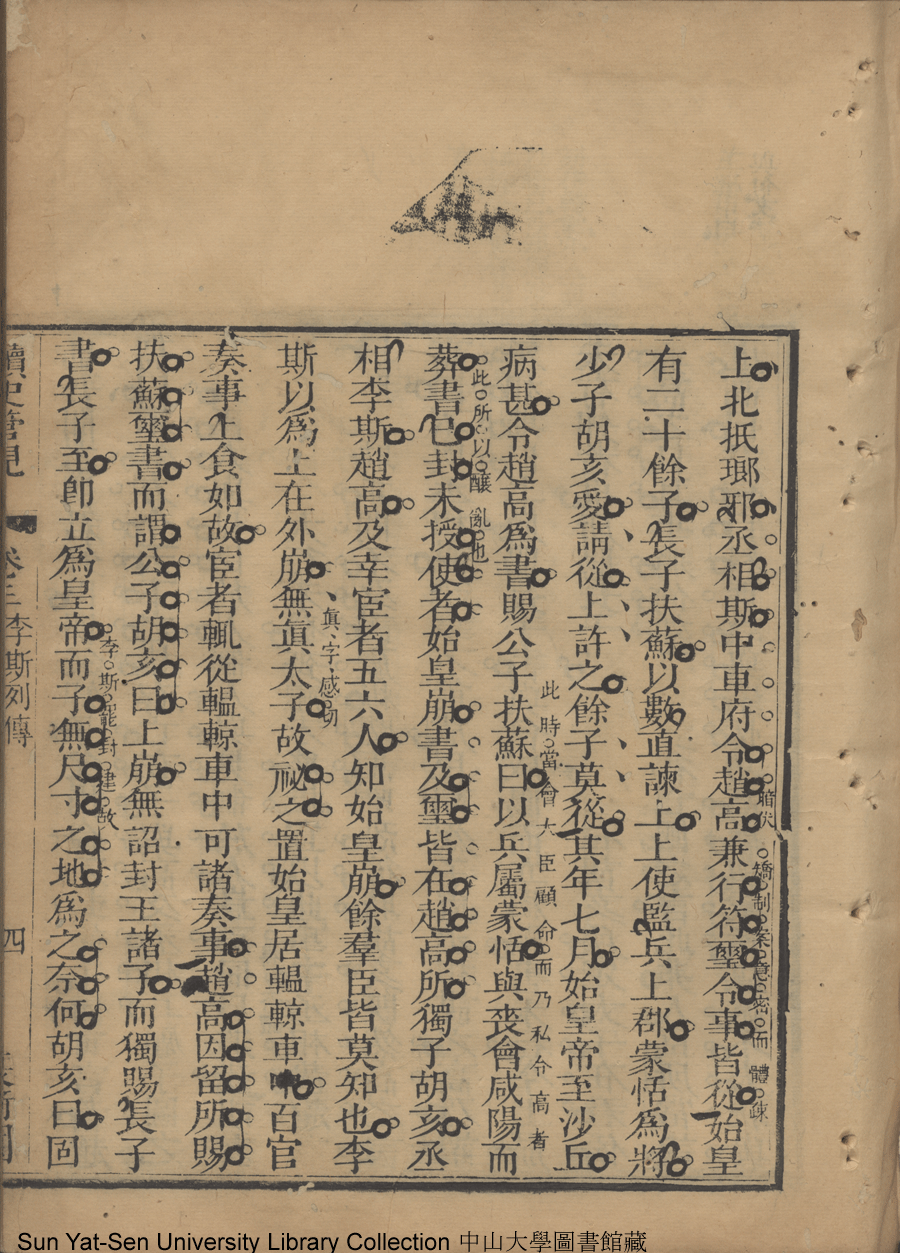 上北抵瑯邪丞相斯中車府令趙高兼行符璽令事皆從始皇
有二十餘子長子扶蘇以數直諫上上使監兵上郡蒙恬爲將
少子胡亥愛請從上許之餘子莫從其年七月始皇帝至沙丘
此時當會大臣顧命而乃私令高者
病甚令趙高爲書賜公子扶蘇曰以兵屬蒙恬與喪會咸陽而
此所以釀亂也
葬書已封未授使者始皇崩書及璽皆在趙高所獨子胡亥丞
相李斯趙高及幸宦者五六人知始皇崩餘羣臣皆莫知也李
眞字感切
斯以爲上在外崩無眞太子故祕之置始皇居轀輬車中百官
奏事上食如故宦者輒從轀輬車中可諸奏事趙高因留所賜
扶蘇璽書而謂公子胡亥曰上崩無詔封王諸子而獨賜長子
李斯罷封建故
書長子至卽立爲皇帝而子無尺寸之地爲之奈何胡亥曰固
讀史管見
卷三
李斯列傳
四
Sun Yat-Sen University Library Collection 中山大學圖書館藏